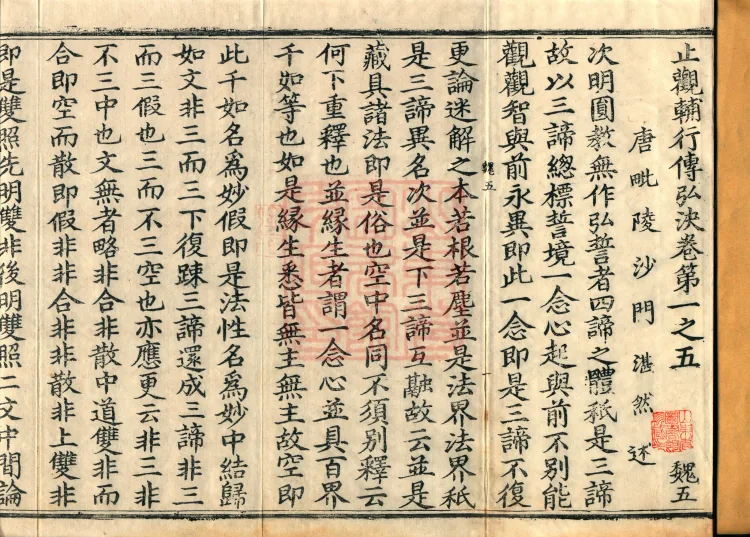 止觀輔行傳弘決卷第一之五 魏五
唐毗陵沙門湛然述
次明圓教無作弘誓者四諦之體秖是三諦
故以三諦總標誓境一念心起與前不別能
觀觀智與前永異即此一念即是三諦不復
魏五
更論迷解之本若根若塵並是法界法界秖
是三諦異名次並是下三諦互融故云並是
藏具諸法即是俗也空中名同不須別釋云
何下重釋也並緣生者謂一念心並具百界
千如等也如是緣生悉皆無主無主故空即
此千如名為妙假即是法性名為妙中結歸
如文非三而三下復踈三諦還成三諦非三
而三假也三而不三空也亦應更云非三非
不三中也文無者略非合非散中道雙非而
合即空而散即假非非合非非散非上雙非
即是雙照先明雙非後明雙照二文中間論